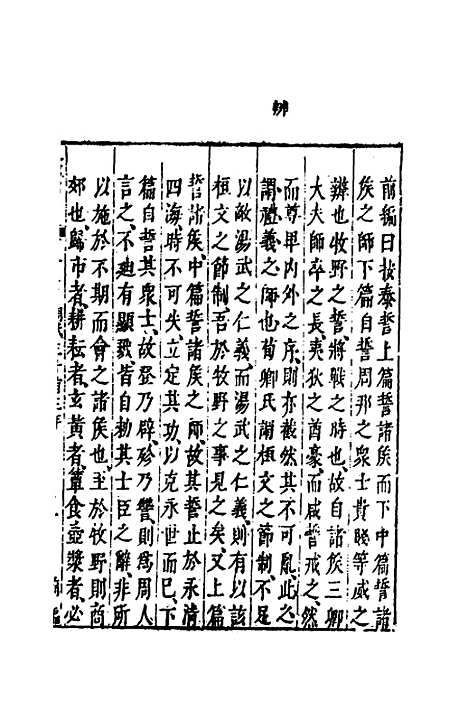 辨
前編曰按泰誓上篇誓諸侯而下中篇誓諸
侯之師下篇自誓周邦之衆士貴賤等威之
辨也牧野之誓將戰之時也故自諸侯三卿
大夫師卒之長夷狄之酋豪而咸誓戒之然
而尊卑内外之序則亦截然其不可亂此之
謂禮義之師也荀卿氏謂桓文之節制不足
以敵湯武之仁義而湯武之仁義則有以該
桓文之節制吾於牧野之事見之矣又上篇
誓諸侯中篇誓諸侯之師故其誓止於永清
四海時不可失立定其功以克永世而已下
篇自誓其衆士故登乃辟殄乃讐則爲周人
言之不迪有顯戮皆自勑其士臣之辭非所
以施於不期而會之諸侯也至於牧野則商
郊也歸市者耕耘者玄黄者簞食壺漿者必